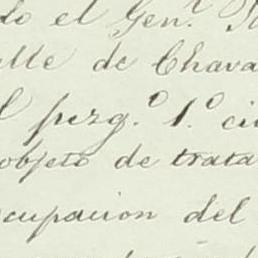 do el Gen.l
alle de Chava
l juzg.o 1.o ci
objeto de trata
cupacion del